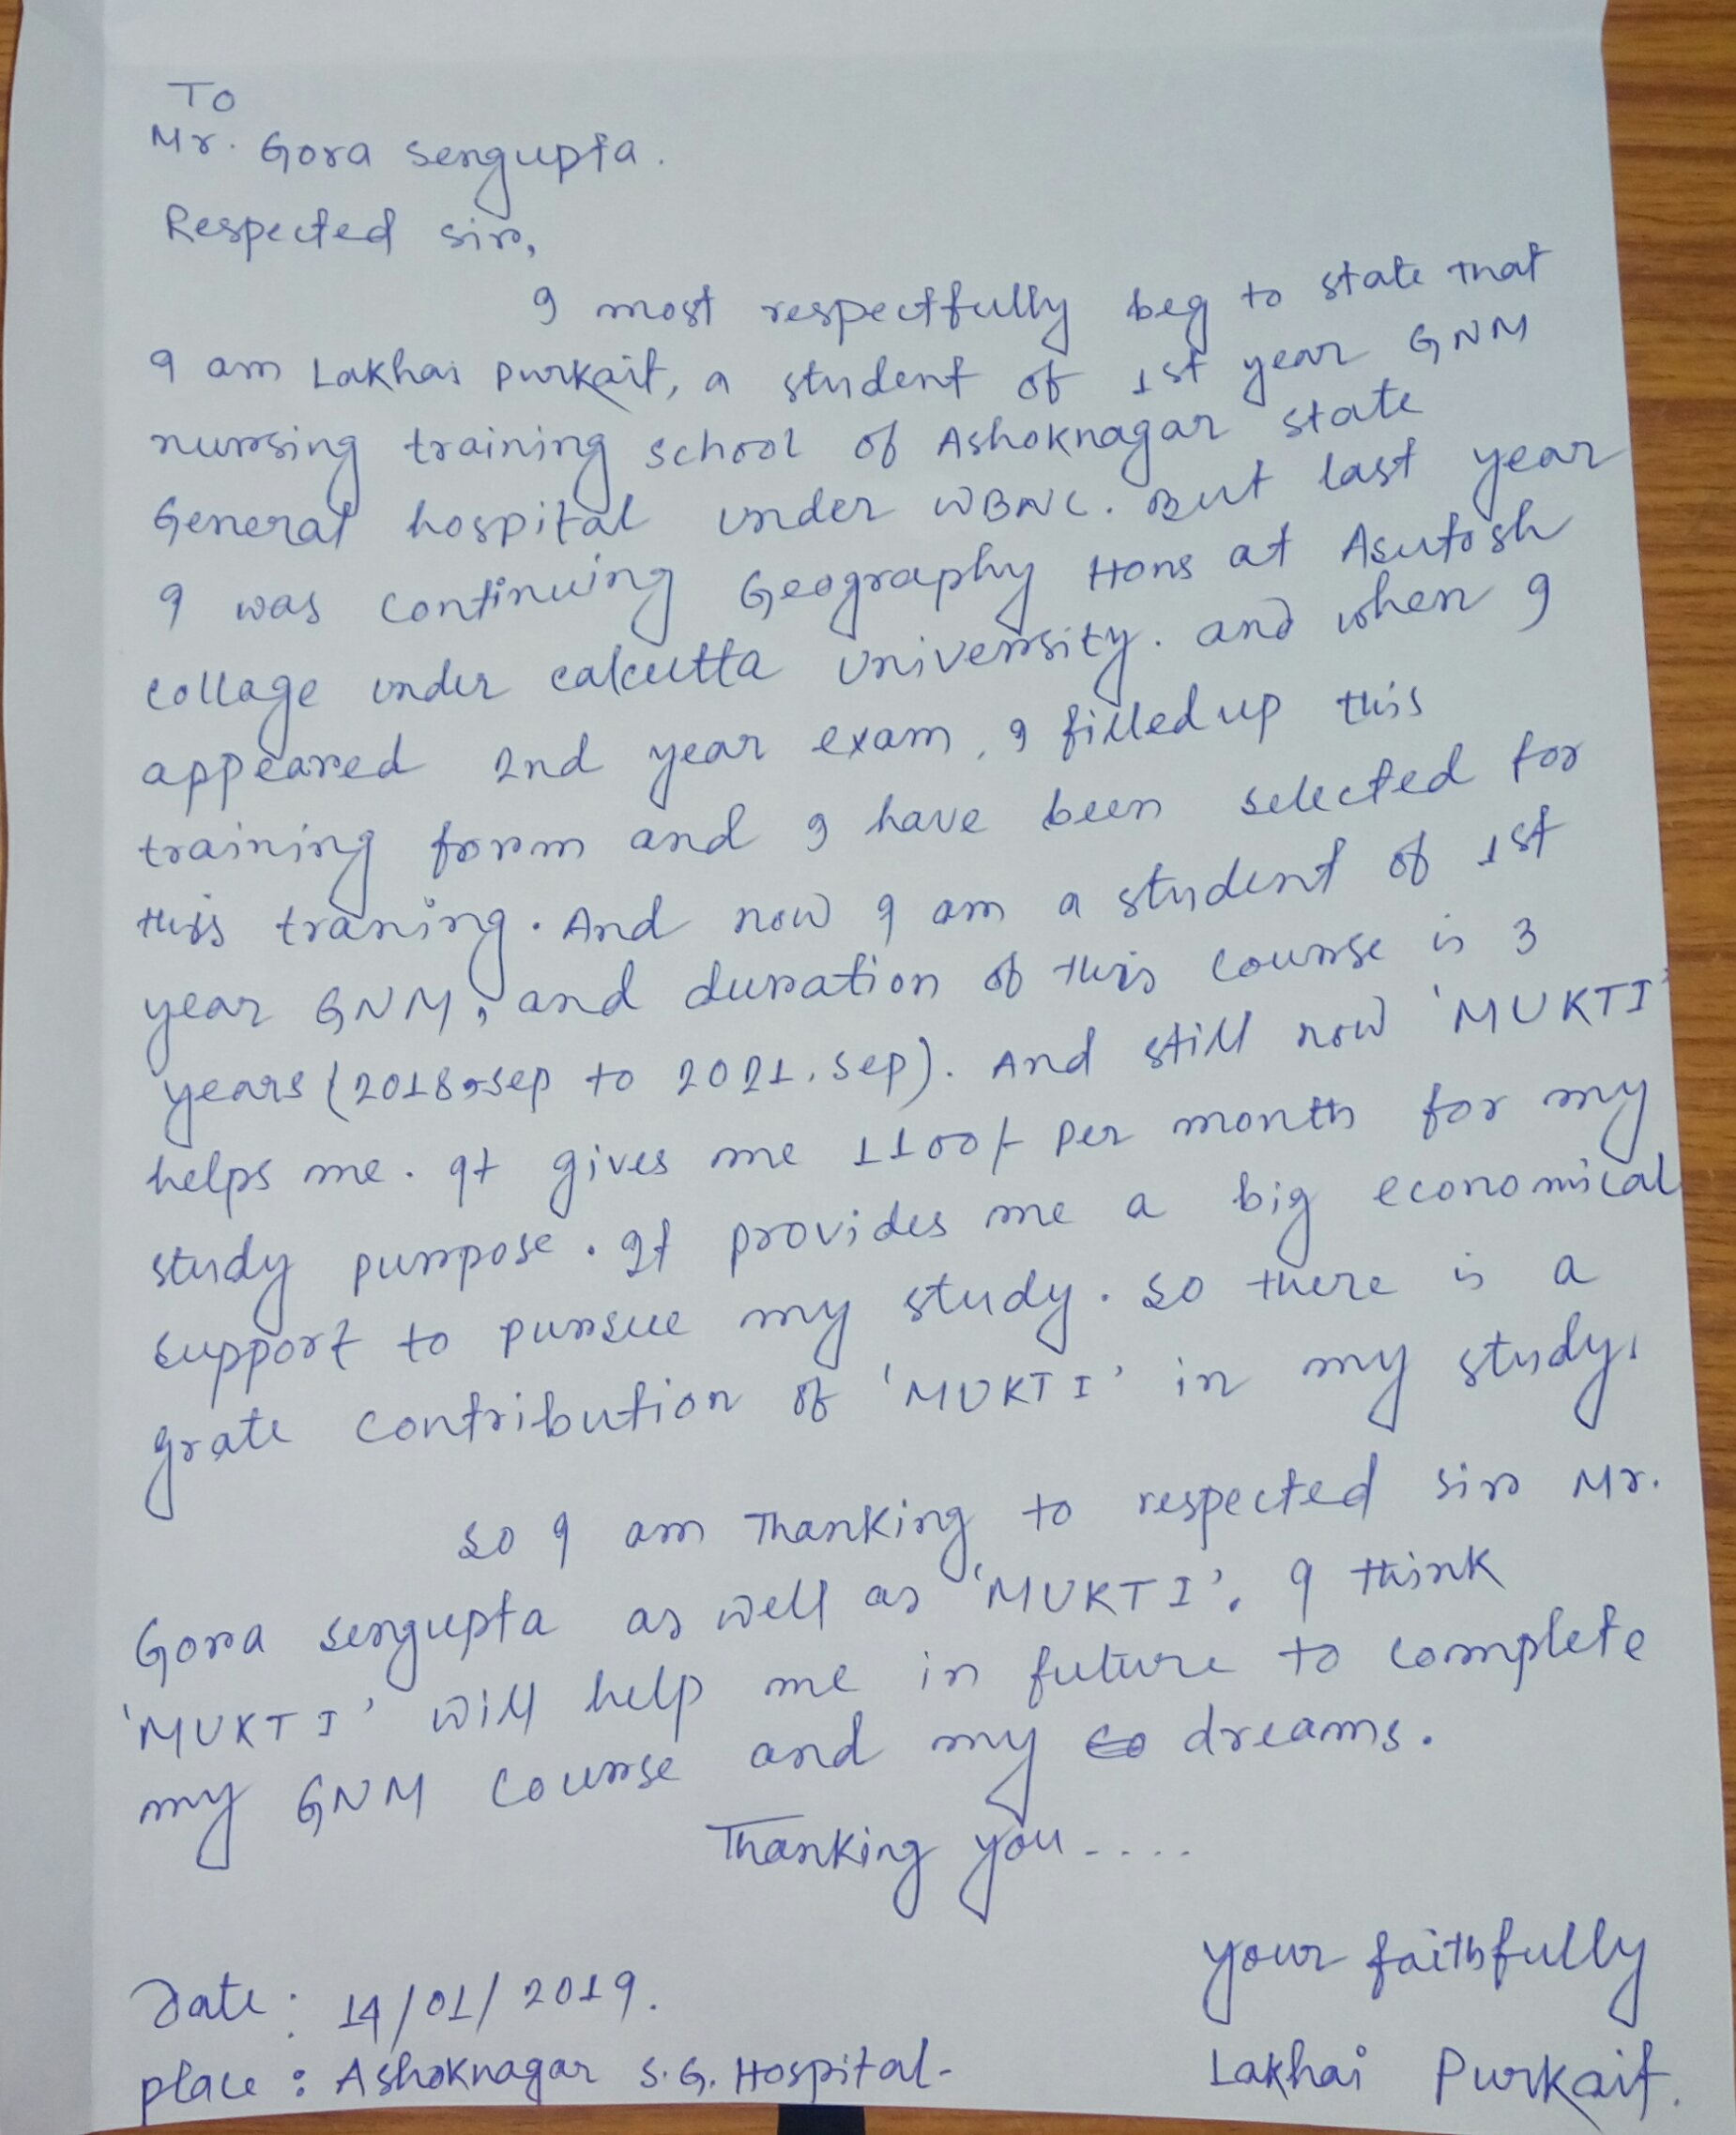 To
Mr. Gora Sengupta.
Respected sir,
I most respectfully beg to state that
I am Lakhai Purkait, a student of 1st year GNM
nursing training school of Ashoknagar state
General hospital under WBNC. But last year
I was continuing Geography Hons at Asutosh
collage under calcutta University. and when I
appeared 2nd year exam, I filled up this
training form and I have been selected for
this traning. And now I am a student of 1st
year GNM, and duration of this course is 3
years (2018, sep to 2021. sep). And still now 'MUKTI'
helps me. It gives me 1100/- per month for my
study purpose. It provides me a big economical
support to pursue my study. So there is a
grate contribution of 'MUKTI' in my study.
So I am Thanking to respected sir Mr.
Gora Sengupta as well as 'MUKTI'. I think
'MUKTI' will help me in future to complete
my GNM course and my dreams.
Thanking you....
your faithfully
Date: 14/01/2019.
place: Ashoknagar S.G. Hospital-
Lakhai Purkait.